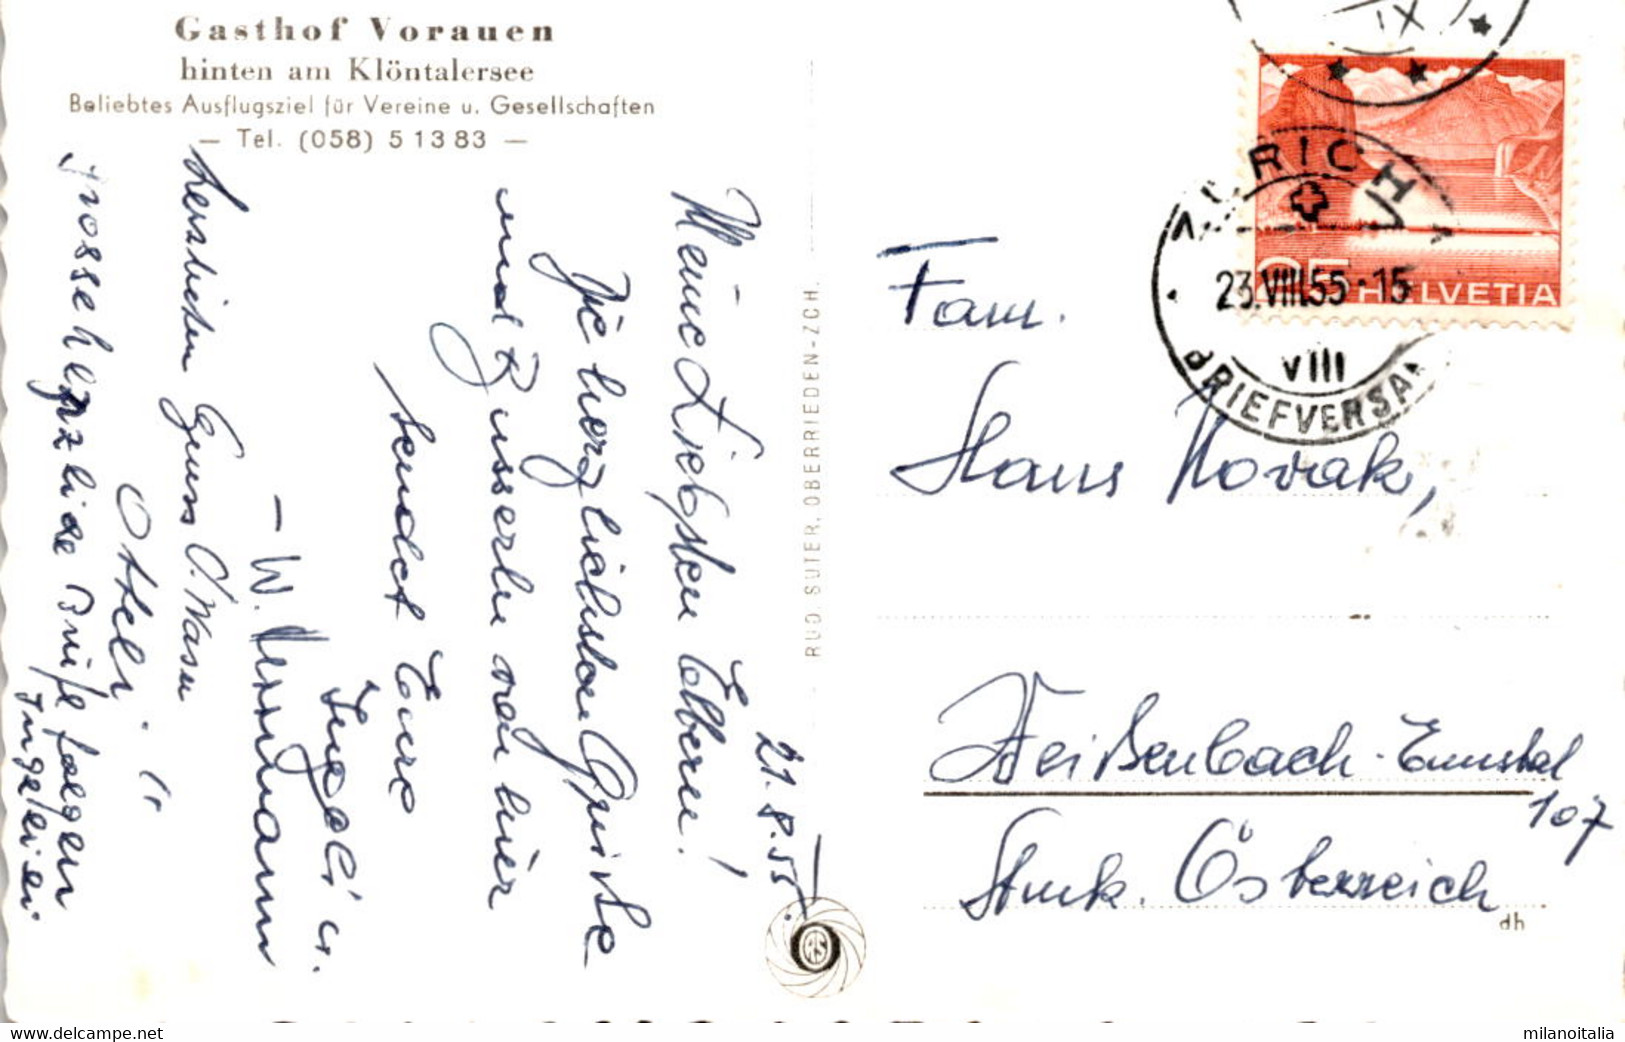 Gasthof Vorauen
hinten am Klöntalersee
Beliebtes Ausflugsziel für Vereine u. Gesellschaften
— Tel. (058) 5 13 83 —
21.8.55.
Meine Liebsten Eltern!
Die herzlichsten Grüsse
und Busserln von hier
sendet Eure
Ingeli u.
– W. Herrmann
Herzlichen Gruss
Otteli
grosse herzliche
RUD. SUTER, OBERRIEDEN-ZCH.
IX
ZÜRICH 1
23.VIII.55·15
VIII
BRIEFVERSAN
25 HELVETIA
Fam.
Hans Novak,
Weißenbach-Ennstal
107
Stmk. Österreich
dh
milanoitalia